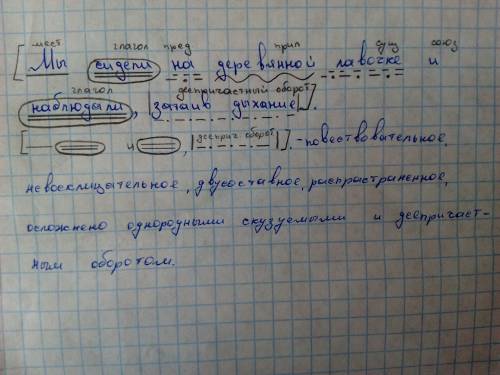 мест глагол пред прил сущ союз
[Мы сидели на деревянной лавочке и
глагол деепричастный оборот
наблюдали, |затаив дыхание|].
[— и , |дееприч. оборот|]. -повествовательное,
невосклицательное, двусоставное, распространенное,
осложнено однородными сказуемыми и деепричаст-
ным оборотом.